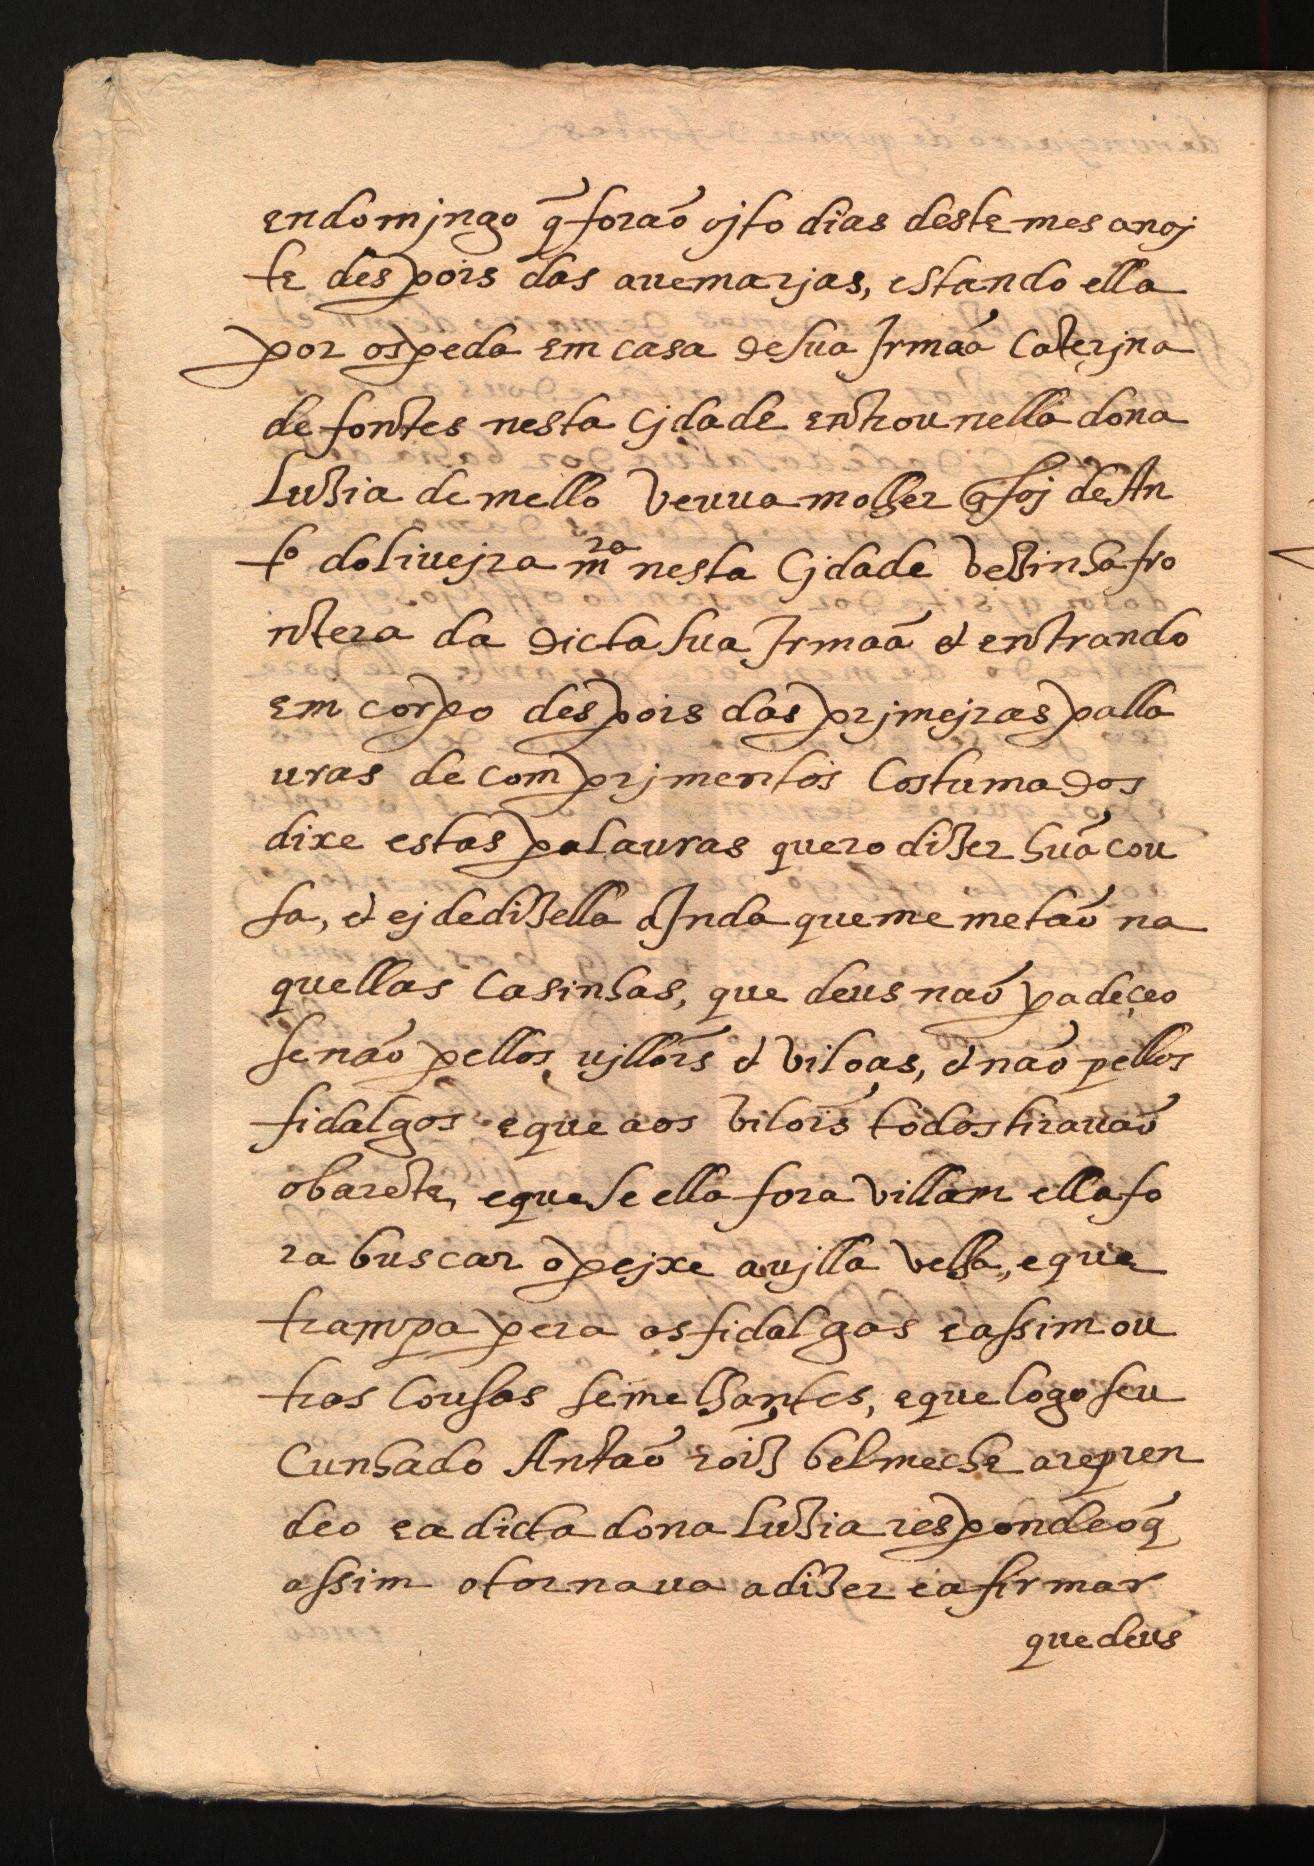 endomjngo q̃ forão ojto dias deste mes anoj
te despois das auemarjas, estando ella
por ospeda em casa de sua Irmaã Caterjna
de fontes nesta Cjdade entrou nella dona
Luzia de mello veuua molher q̃ foj de An
tº doliuejra mra nesta Cjdade vezinha fro
ntera da dicta sua Irmaã & entrando
em corpo despois das prjmejras palla
uras de comprjmentos Costumados
dixe estas palauras quero dizer huã cou
sa, & ej de dizella aInda que me metão na
quellas Casinhas, que deus não padeçeo
senão pellos vjllõis & viloãs, & não pellos
fidalgos e que aos vilõis todos tirauão
o barete, e que se ella fora villam ella fo
ra buscar o pejxe a vjlla velha, e que
trampa pera os fidalgos e assim ou
tras Cousas semelhantes, e que logo seu
Cunhado Antão roiz belmeche a repren
deo e a dicta dona Luzia respondeo q̃
assim o tornaua a dizer e afirmar
que deus